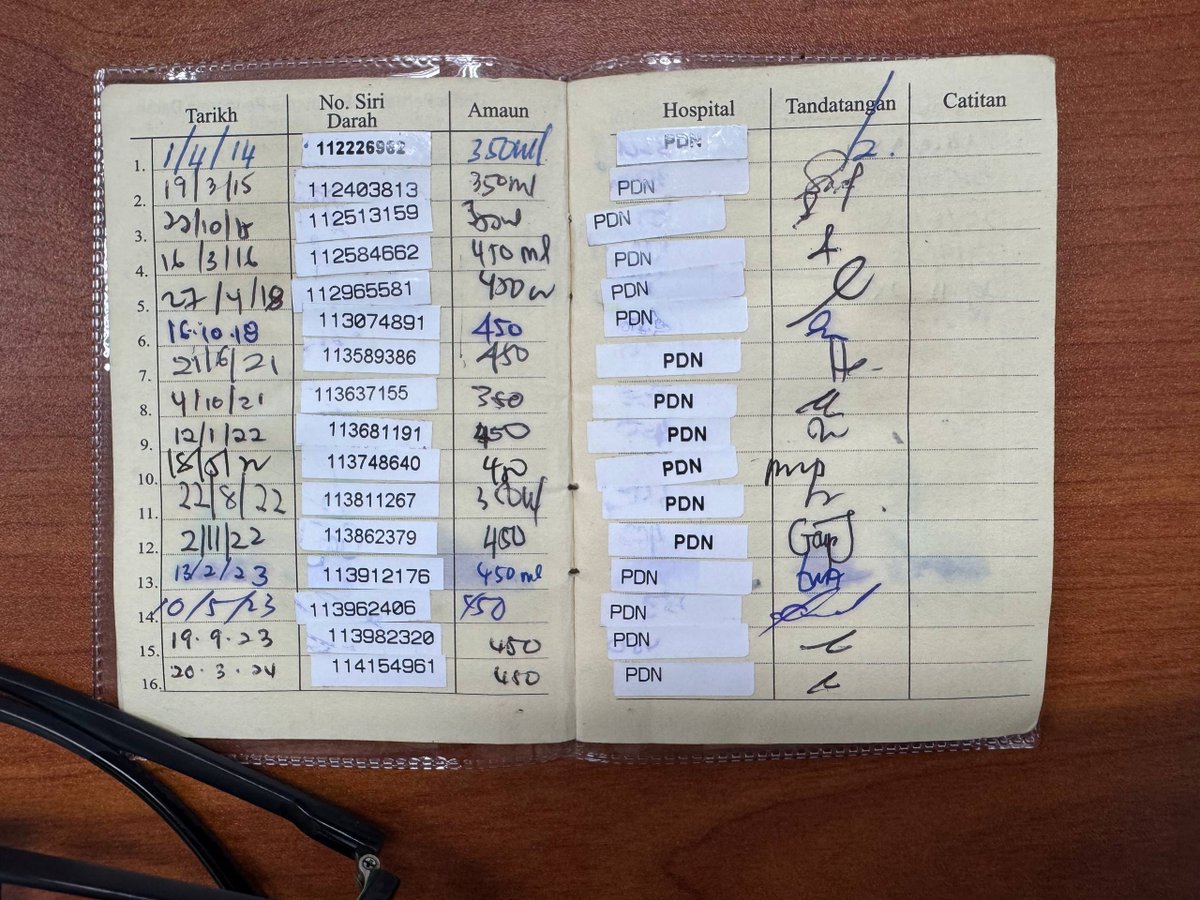 Tarikh No. Siri Darah Amaun Hospital Tandatangan Catitan
1. 1/4/14 112226962 350ml PDN
2. 19/3/15 112403813 350ml PDN
3. 112513159 PDN
4. 16/3/16 112584662 450 ml PDN
5. 27/4/18 112965581 450 PDN
6. 16.10.18 113074891 450 PDN
7. 21/6/21 113589386 450 PDN
8. 4/10/21 113637155 350 PDN
9. 12/1/22 113681191 450 PDN
10. 113748640 450 PDN
11. 22/8/22 113811267 350ml PDN
12. 2/11/22 113862379 450 PDN
13. 13/2/23 113912176 450ml PDN
14. 10/5/23 113962406 450 PDN
15. 19.9.23 113982320 450 PDN
16. 20.3.24 114154961 450 PDN